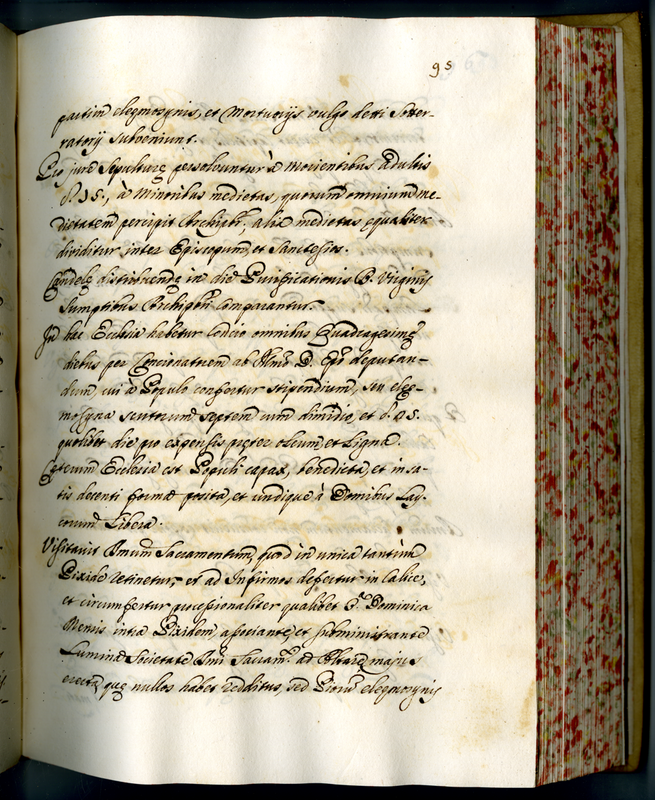 95
partim elegmosynis, et Mortuorijs vulgo detti Sotter-
ratorij subveniunt.
Pro jure Sepulturę persolvuntur à Morientibus Adultis
15., à Minoribus medietas, quorum omnium me-
dietatem percipit Archipbr, alia medietas ęqualiter
dividitur inter Episcopum, et
Candelę distribuendę in die Purificationis B. Virginis
sumptibus Archipbri Comparantur.
In hac Ecclesia habetur Concio omnibus Quadragesimę
diebus per Concionatorem ab Illmo D. Epo deputan-
dum, cui à Populo confertur stipendium, seu eleg-
mosyna scutorum septem cum dimidio, et 15.
quolibet die pro expensis pręter oleum, et Ligna.
Cęterum Ecclesia est Populi capax, benedicta, et in sa-
tis decenti forma posita, et undique à Domibus Lay-
corum Libera.
Visitavit Smum Sacramentum, quod in unica tantum
Pixide retinetur, et ad Infirmos deffertur in Calice,
et circumfertur processionaliter qualibet 3.a Dominica
Mensis intra Pixidem associante, et subministrante
Lumina Societate Smi Sacram.ti ad Altare majus
erecta, quę nullos habet redditus, sed Piorum elegmosynis